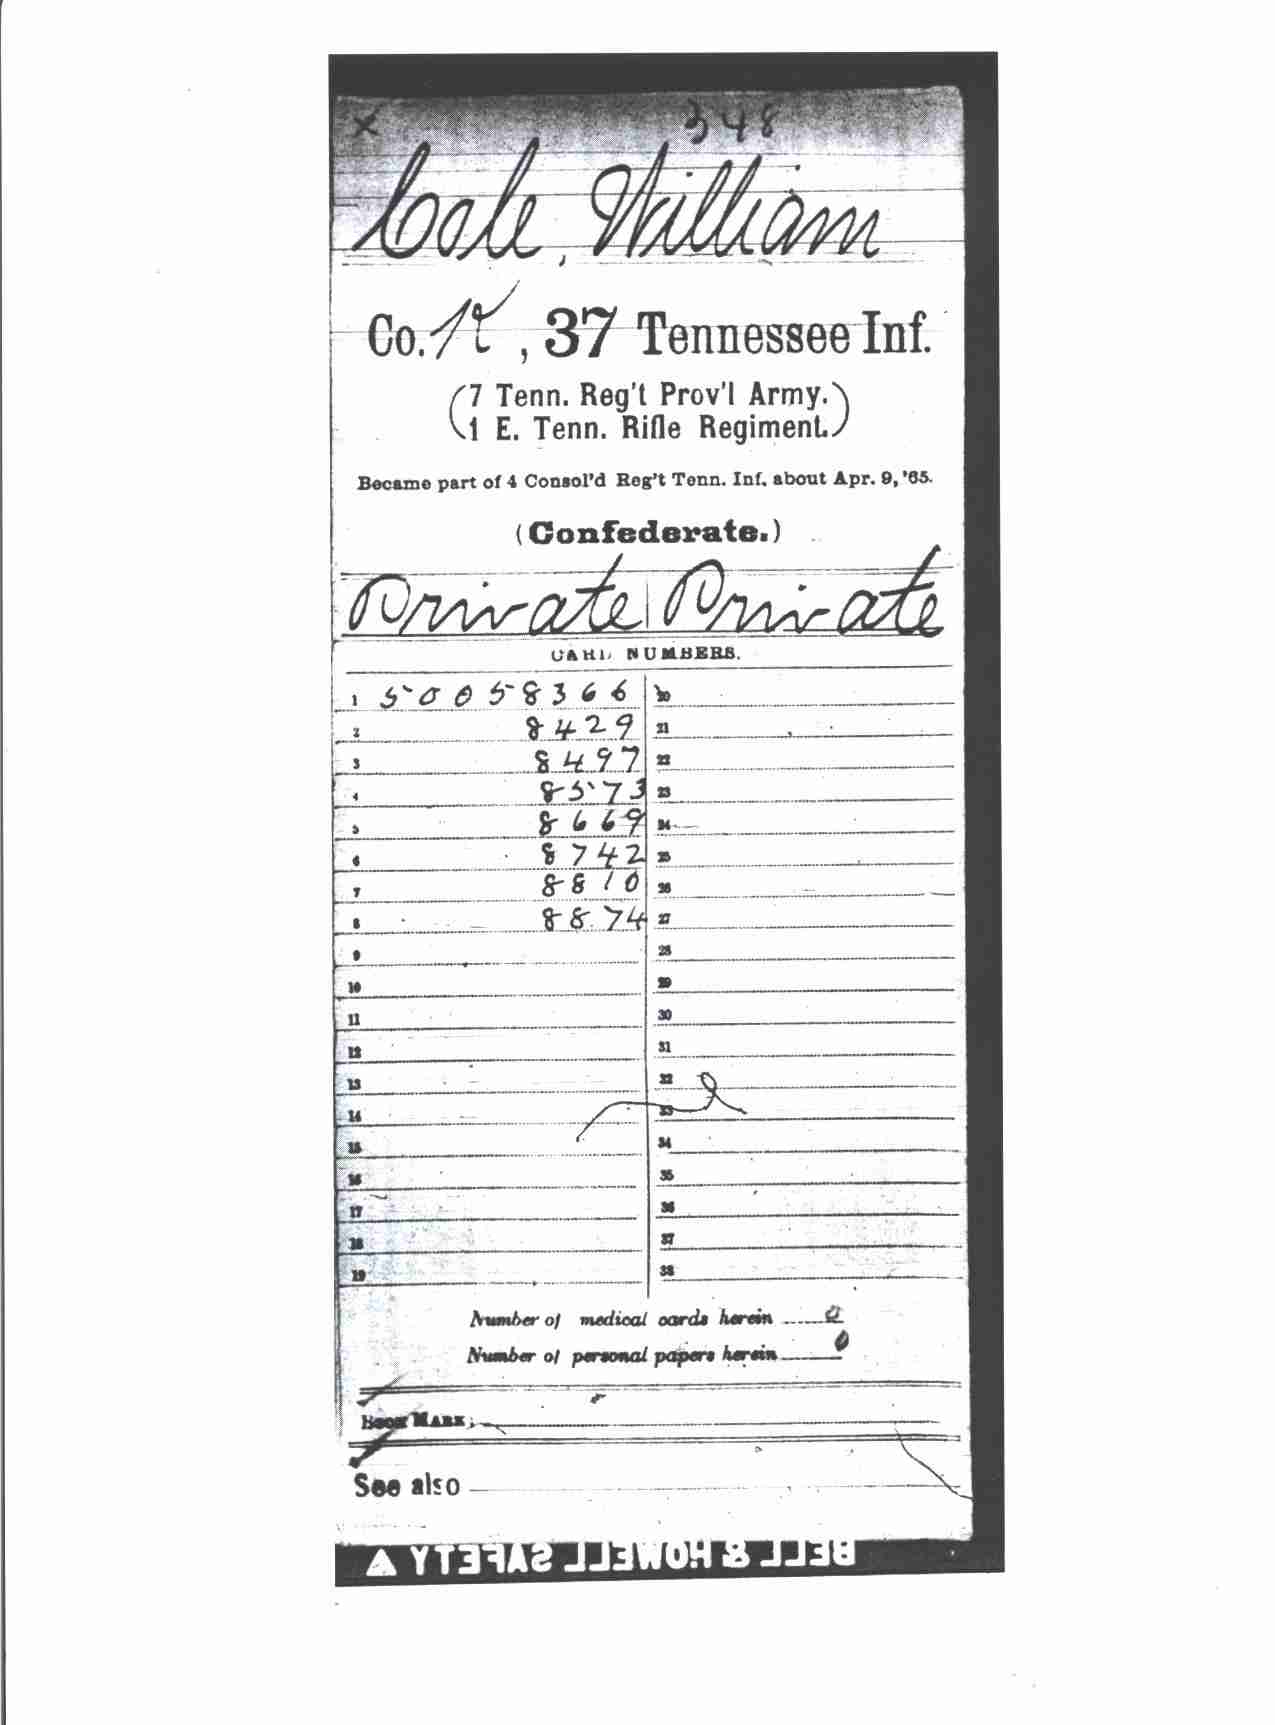 x 348
Cole, William
Co. K, 37 Tennessee Inf.
(7 Tenn. Reg't Prov'l Army.)
(1 E. Tenn. Rifle Regiment.)
Became part of 4 Consol'd Reg't Tenn. Inf. about Apr. 9, '65.
(Confederate.)
Private | Private
CARD NUMBERS.
1 50058366 20
2 8429 21
3 8497 22
4 8573 23
5 8669 24
6 8742 25
7 8810 26
8 8874 27
9 28
10 29
11 30
12 31
13 32
14 33
15 34
16 35
17 36
18 37
19 38
Number of medical cards herein 0
Number of personal papers herein 0
BOOK MARK:
See also
BELL & HOWELL SAFETY ▲